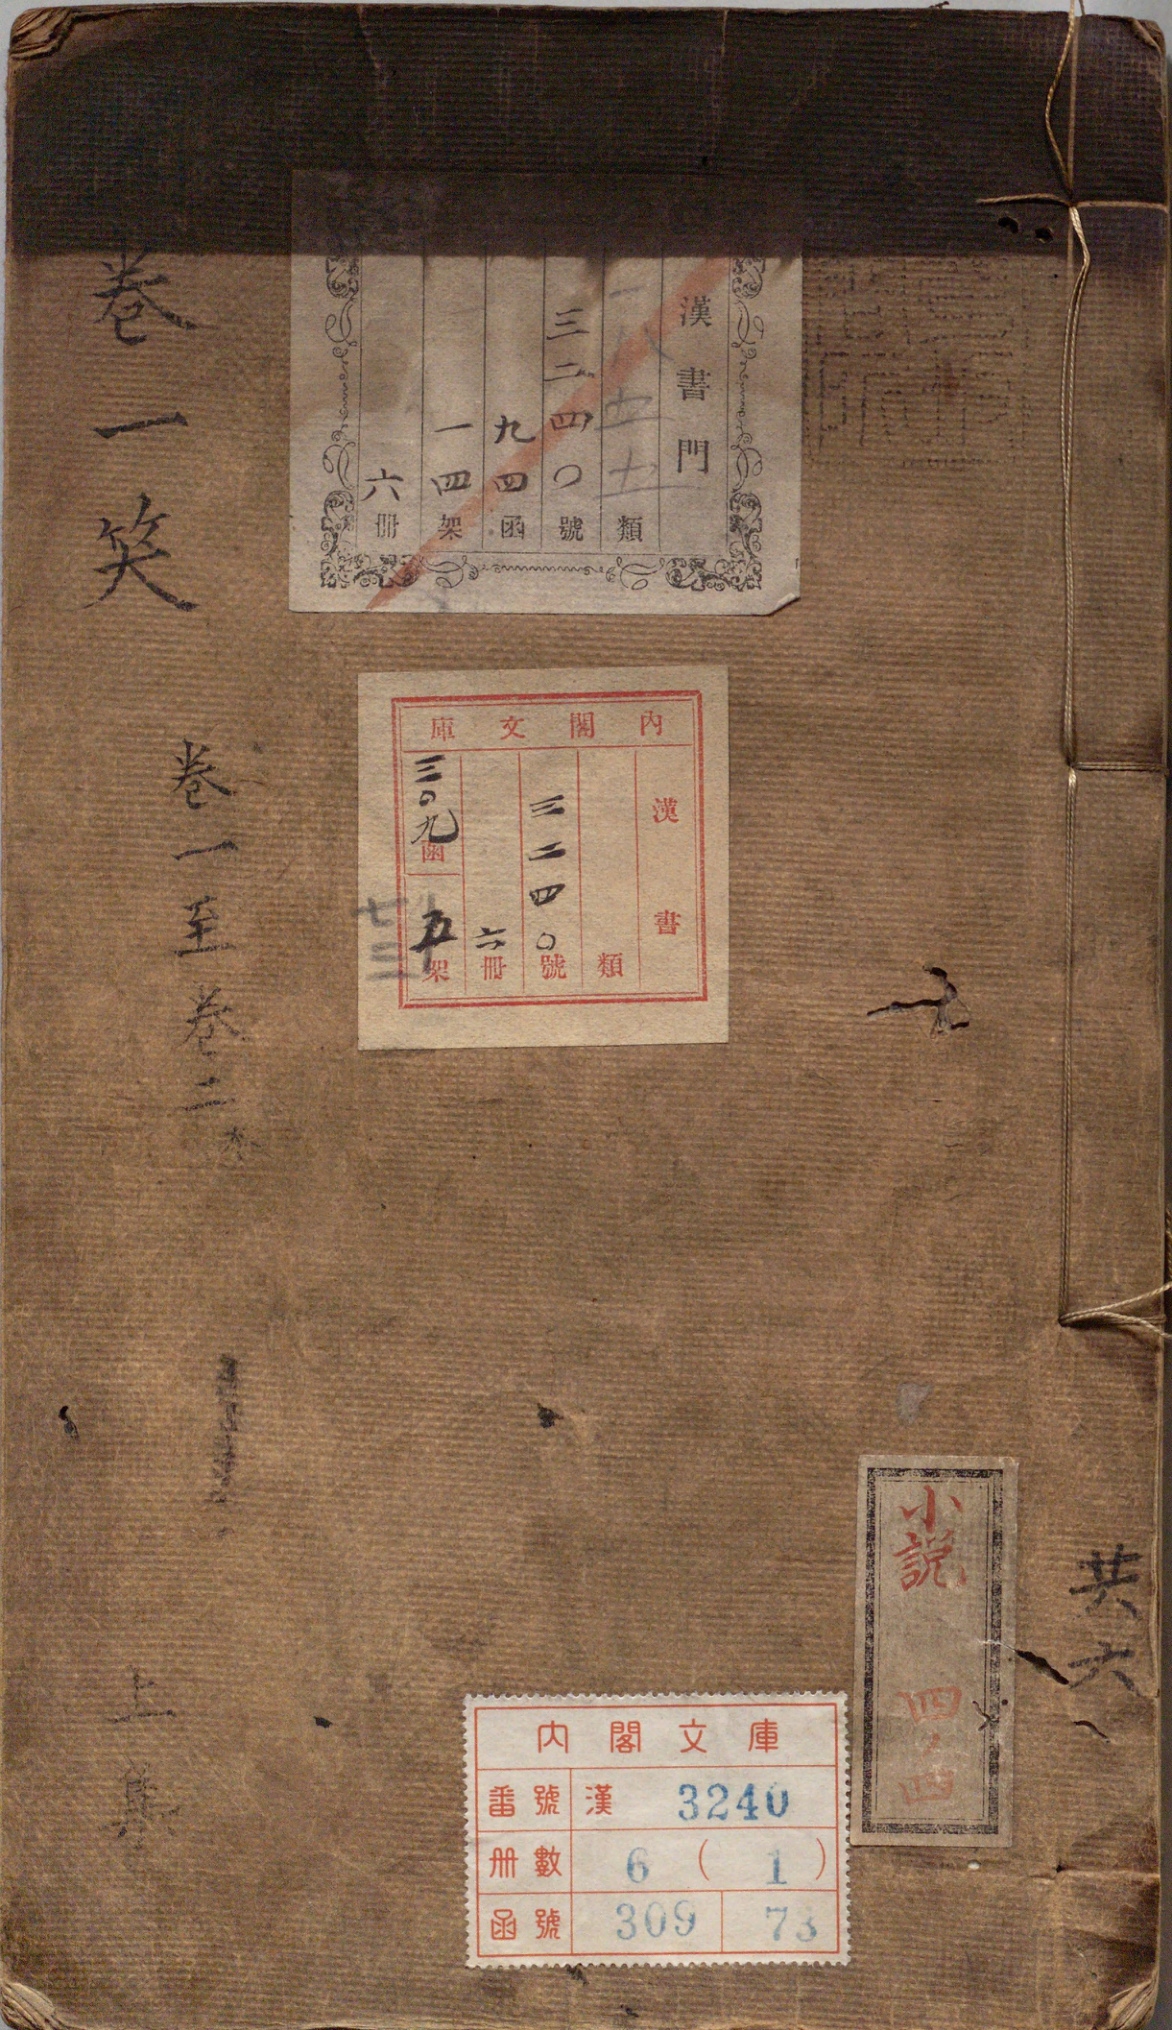 卷一笑
卷一至卷二
上集
漢書門
類
三二四〇號
九四函
一四架
六冊
內閣文庫
漢書
類
三二四〇號
六冊
三〇九函
五架
七三
小說
四ノ四
共六
內閣文庫
番號 漢 3240
冊數 6 ( 1 )
函號 309 73